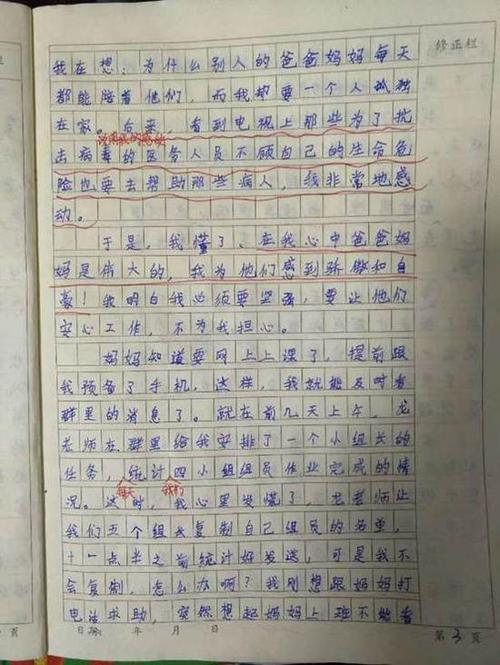 修正栏
我在想：为什么别人的爸爸妈妈每天
都能陪着他们，而我却要一个人孤独
在家。后来，看到电视上那些为了抗
击病毒的医务人员不顾自己的生命危
险也要去帮助那些病人，我非常地感
动。
于是，我懂了、在我心中爸爸妈
妈是伟大的，我为他们感到骄傲和自
豪！我明白我必须要坚强，要让他们
安心工作，不为我担心。
妈妈知道要网上上课了，提前跟
我预备了手机，这样，我就能及时看
群里的消息了。就在前几天上午，龙
老师在群里给我安排了一个小组长的
任务，统计四小组组员作业完成的情
每天 我们
况。这时，我心里发慌了，龙老师让
我们五个组长复制自己组员的名单，
十一点半之前统计好发送，可是我不
会复制，怎么办啊？我刚想跟妈妈打
电话求助，突然想起妈妈上班不能看
日期： 年 月 日 第 3 页
页